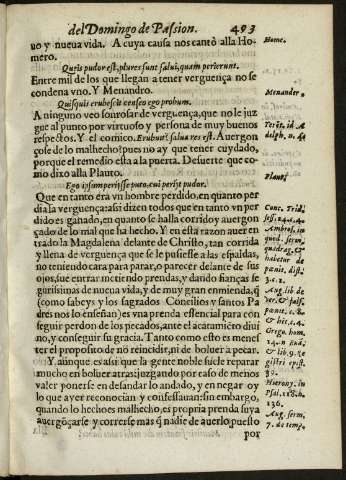 del Domingo de Passion. 493
uo y nueua vida. A cuya causa nos cantò alla Ho-
mero.
Home.
Quris pudor est, plures sunt salui, quam perierunt.
Entre mil de los que llegan a tener verguença no se
condena vno. Y Menandro.
Menander.
Quisquis erubescit censeo ego probum.
A ninguno veo sonrosar de verguença, que no le juz
gue al punto por virtuoso y persona de muy buenos
respectos. Y el comico. Erubuit salua res est. Auergon
çose de lo malhecho? pues no ay que tener cuydado,
porque el remedio esta a la puerta. De suerte que co-
mo dixo alla Plauto.
Terēt. id. A
delph.
Plaut.
Ego ipsum perijsse puto, cui perijt pudor.
Que en tanto era vn hombre perdido, en quanto per
dia la verguença: assi dizen todos que en tanto vn per
dido es ganado, en quanto se halla corrido y auergon
çado de lo mal que ha hecho. Y en esta razon auer en
trado la Magdalena delante de Christo, tan corrida
y llena de verguença que se le pusiesse a las espaldas,
no teniendo cara para parar, o parecer delante de sus
ojos, fue entrar mereciendo prendas, y dando fianças se
gurissimas de nueua vida, y de muy gran enmienda, q̃
(como sabeys y los sagrados Concilios y santos Pa
dres nos lo enseñan) es vna prenda essencial para con
seguir perdon de los pecados, ante el acatamiēto diui
no, y conseguir su gracia. Tanto como esto es mene
ster el proposito de nò reincidir, ni de boluer a pecar.
Conc. Trid.
sess.
Ambros. in
quad. serm.
quadrag. &
habetur de
pœnit. dist.
3. c. 1.
Aug. lib. de
& his, c. 4.
Grego. hom.
& lib. 9. re
gistri epist.
39.
Y aũque es assi que la gente noble suele reparar
mucho en boluer atras: juzgando por caso de menos
valer ponerse en desandar lo andado, y en negar oy
lo que ayer reconocian y confessauan: sin embargo,
quando lo hecho es malhecho, es propria prenda suya
auergõçarse y correrse mas q̃ nadie de auerlo puesto
Hierony. in
136.
Aug. serm.
7. de temp.
por